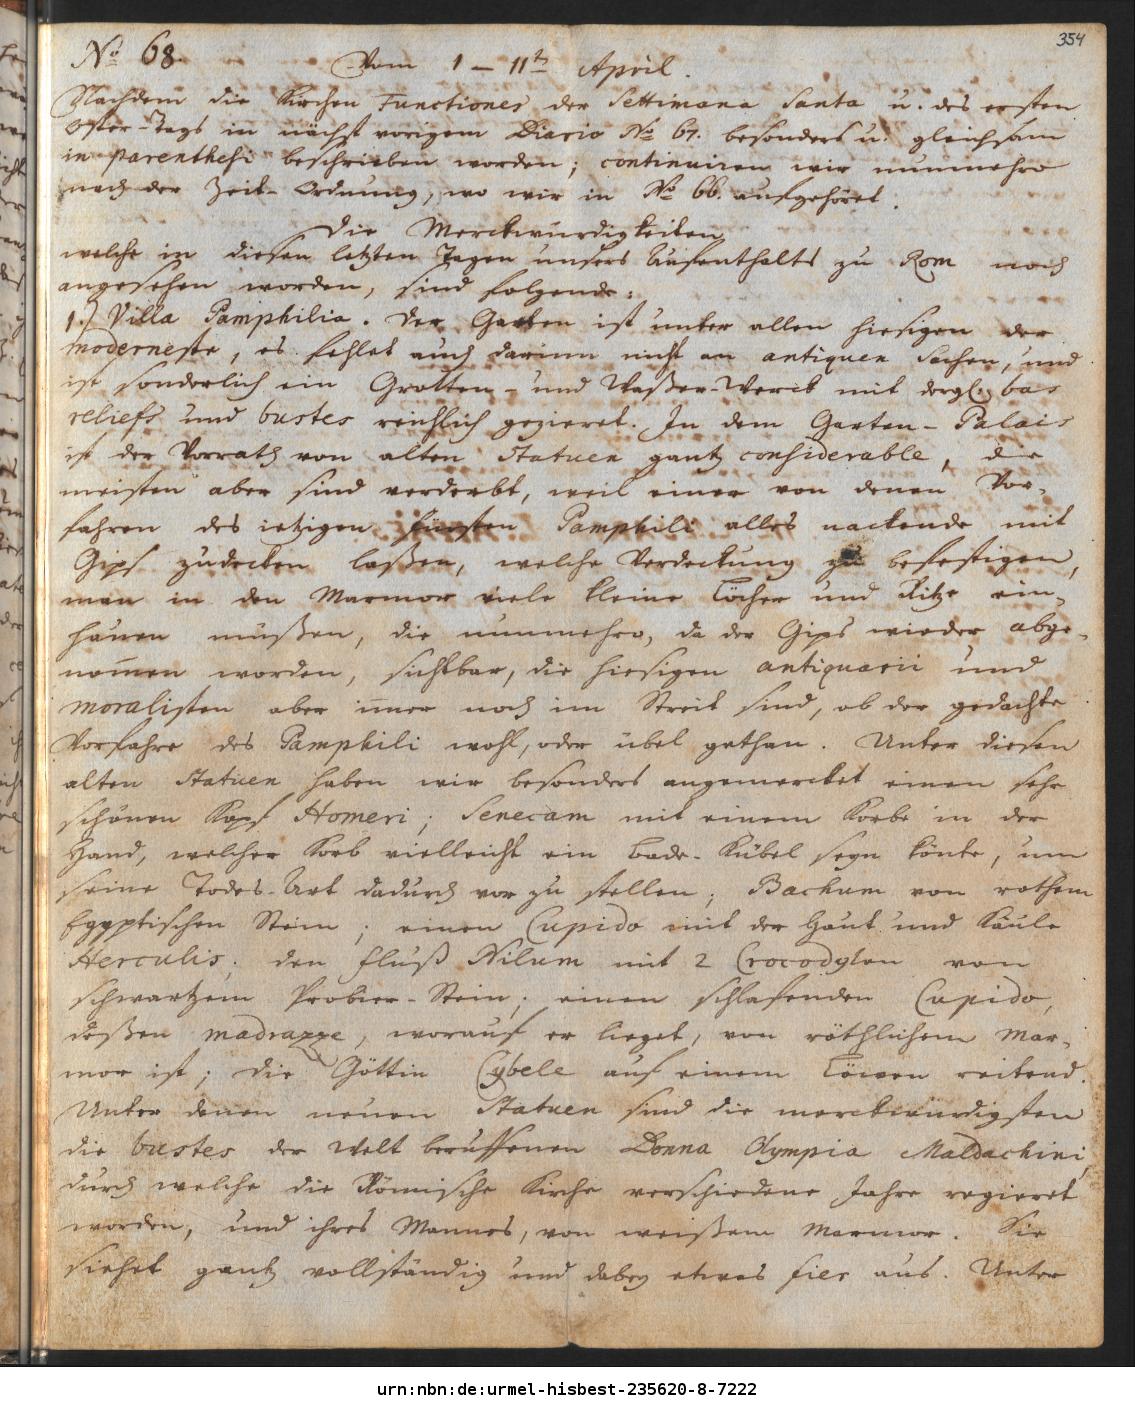 354
No 68.
Vom 1 – 11ten April.
Nachdem die Kirchen Functiones der Settimana Santa u. des ersten
Oster-Tags in nächst vorigem Diario No 67. besonders u. gleichsam
in parenthesi beschrieben worden; continuiren wir nunmehro
nach der Zeit-Ordnung, wo wir in No 66. aufgehöret.
Die Merckwürdigkeiten
welche in diesen letzten Tagen unsers Aufenthalts zu Rom noch
angesehen worden, sind folgende:
1.) Villa Pamphilia. Der Garten ist unter allen hiesigen der
moderneste, es fehlet auch darinn nicht an antiquen Sachen, und
ist sonderlich ein Grotten- und Waßer-Werck mit dergl. bas
reliefs und bustes reichlich gezieret. In dem Garten-Palais
ist der Vorrath von alten Statuen gantz considerable, die
meisten aber sind verderbt, weil einer von denen Vor-
fahren des ietzigen Fürsten Pamphili alles nackende mit
Gips zudecken laßen, welche Verdeckung zu befestigen,
man in den Marmor viele kleine Löcher und Ritze ein-
hauen müßen, die nunmehro, da der Gips wieder abge-
nom̄en worden, sichtbar, die hiesigen antiquarii und
moralisten aber im̄er noch im Streit sind, ob der gedachte
Vorfahre des Pamphili wohl, oder übel gethan. Unter diesen
alten Statuen haben wir besonders angemercket einen sehr
schönen Kopf Homeri; Senecam mit einem Korbe in der
Hand, welcher Korb vielleicht ein Bade-Kübel seyn könte, um
seine Todes-Art dadurch vor zu stellen; Bachum von rothem
Egyptischen Stein; einen Cupido mit der Haut und Käule
Herculis; den Fluß Nilum mit 2 Crocodylen von
schwartzem Probier-Stein; einen schlafenden Cupido,
deßen madrazze, worauf er lieget, von röthlichem Mar-
mor ist; die Göttin Cybele auf einem Löwen reitend.
Unter denen neuen Statuen sind die merckwürdigsten
die bustes der Welt beruffenen Donna Olympia Maldachini,
durch welche die Römische Kirche verschiedene Jahre regieret
worden, und ihres Mannes, von weißem Marmor. Sie
siehet gantz vollständig und dabey etwas fier aus. Unter
urn:nbn:de:urmel-hisbest-235620-8-7222